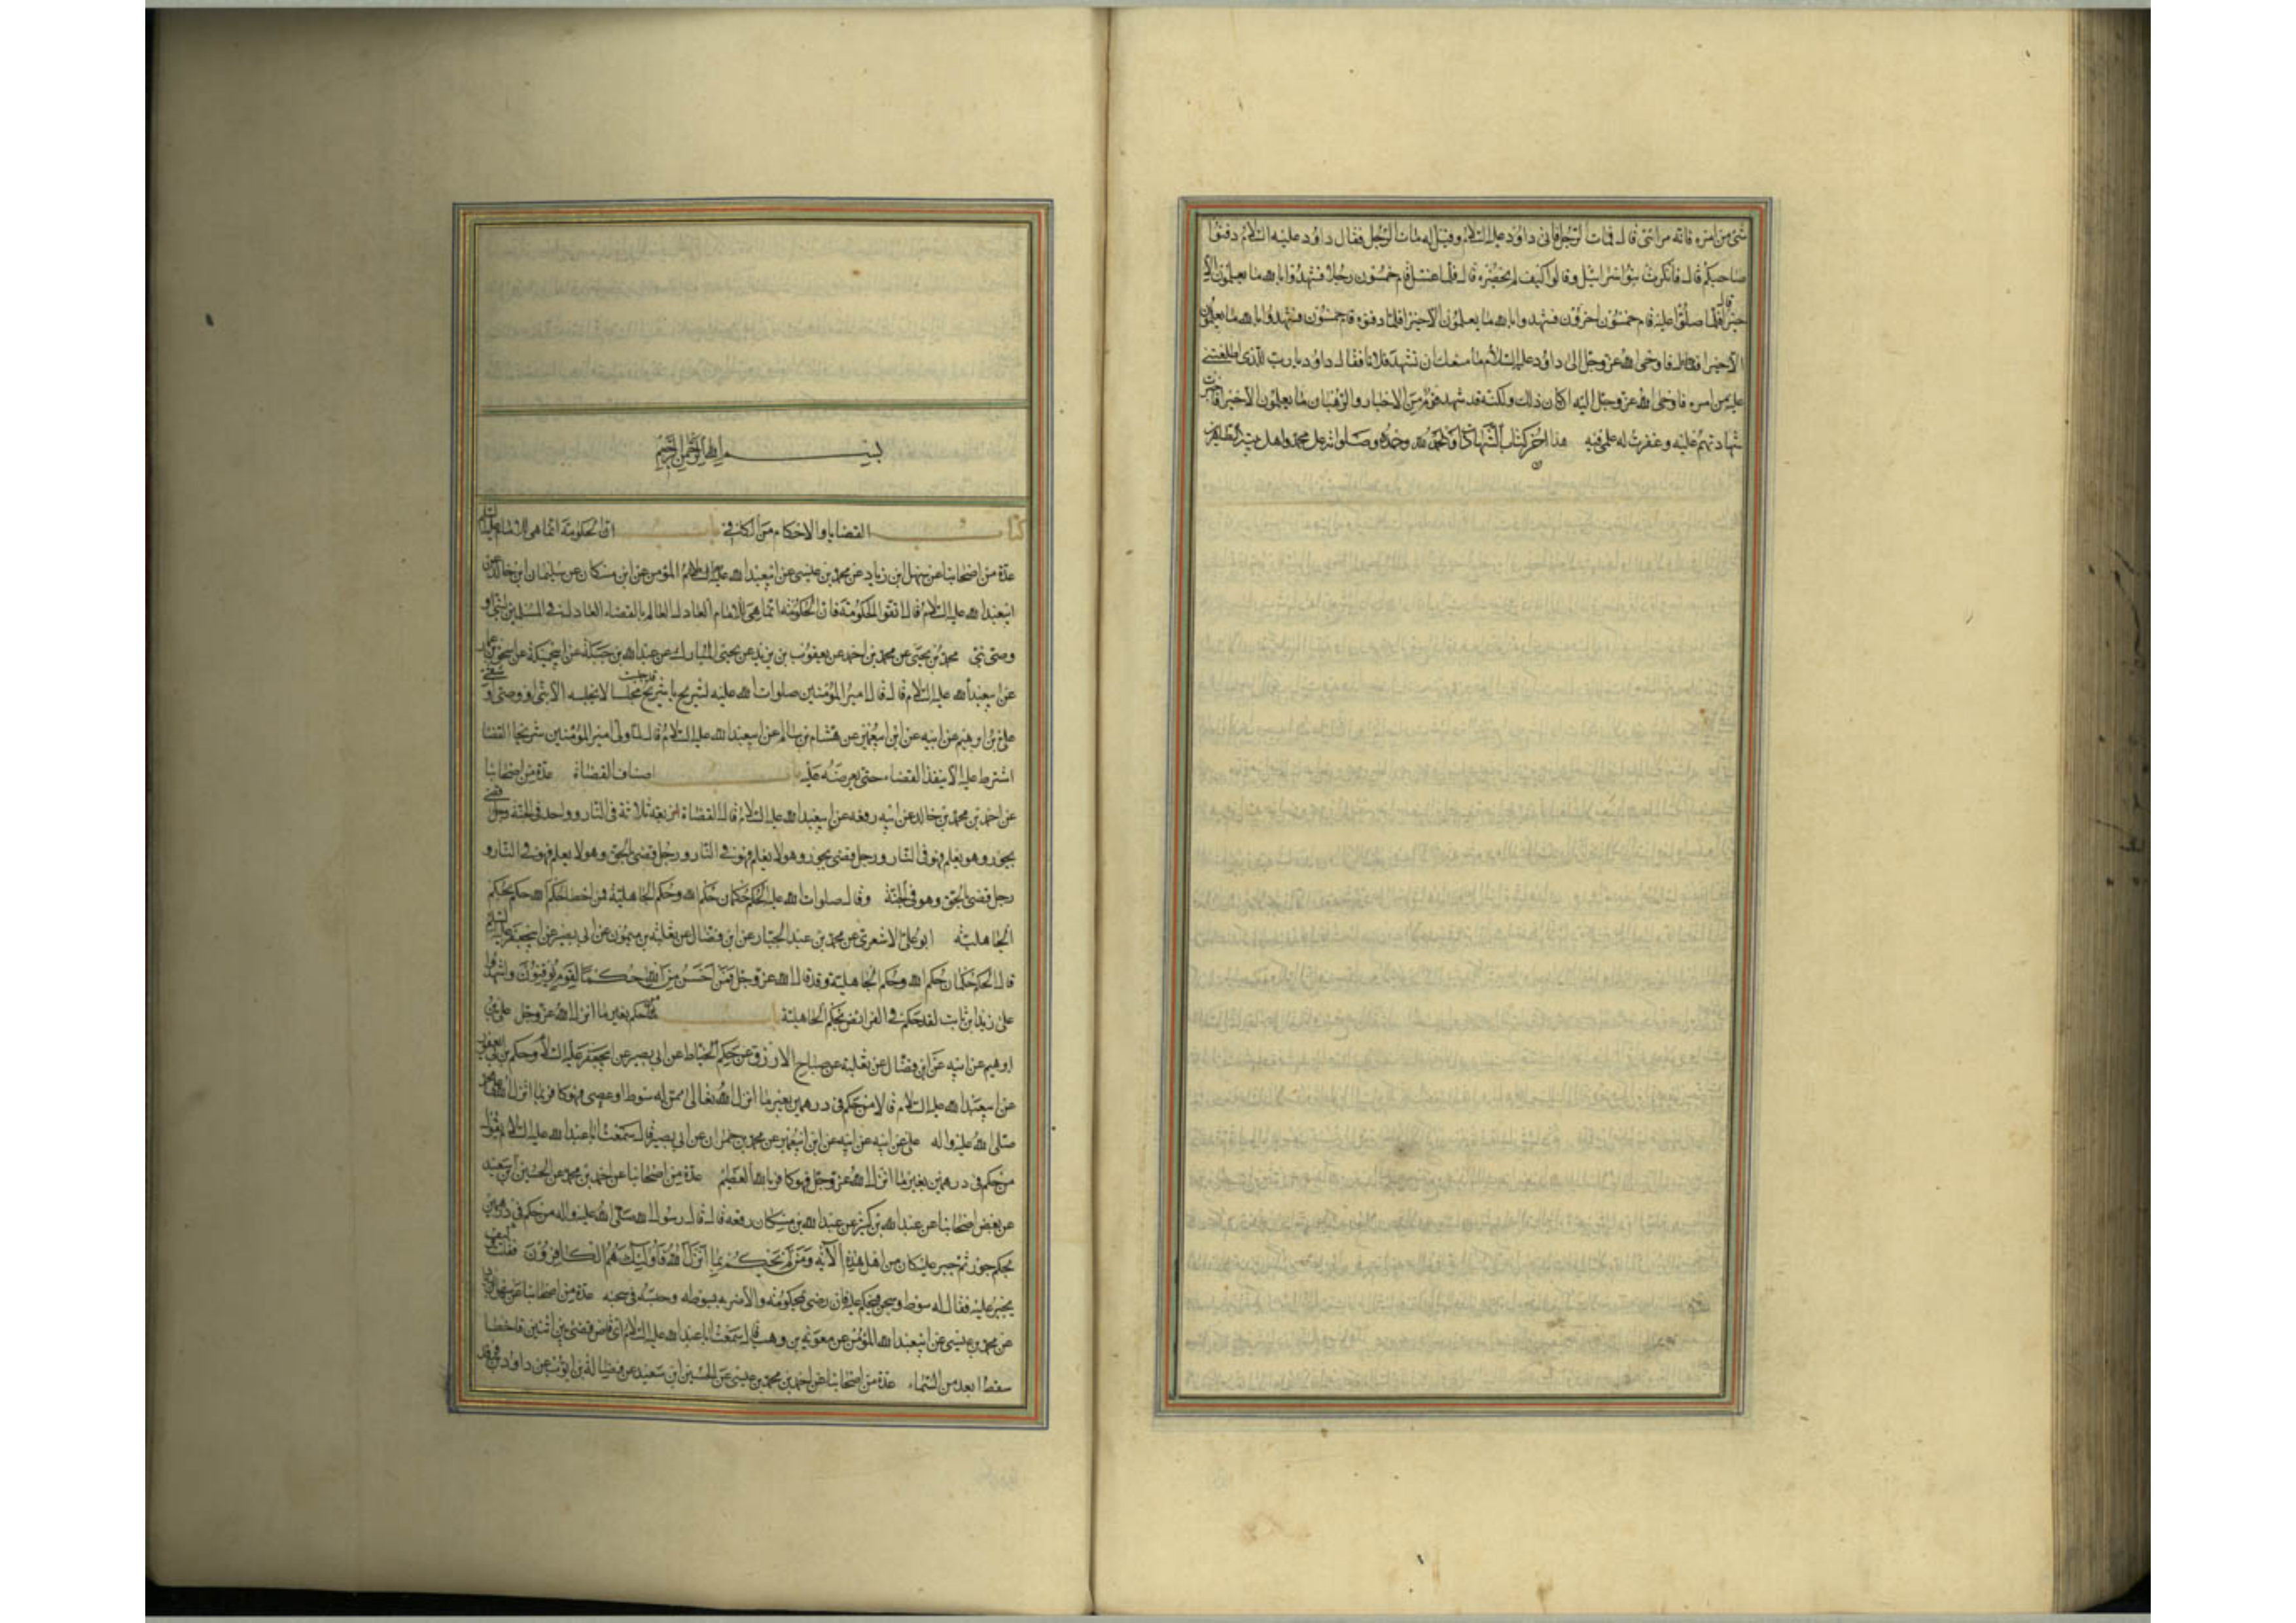 شئ من امره فانه مرائى قال فمات الرجل فاتى داود عليه السلام وقيل له مات الرجل فقال داود عليه السلام دفنوا
صاحبكم قال فانكرت بنو اسرائيل وقالوا كيف لم يحضره قال فلما غسل قام خمسون رجلا فشهدوا بالله ما يعلمون الا
خيرا قال فلما صلوا عليه قام خمسون اخرون فشهدوا بالله ما يعلمون الا خيرا فلما دفنوه قام خمسون فشهدوا بالله ما يعلمون
الا خيرا فاوحى الله عز وجل الى داود عليه السلام ما منعك ان تشهد فلانا فقال داود يا رب للذى اطلعتنى
عليه من امره فاوحى الله عز وجل اليه ان كان ذلك ولكنه قد شهد قوم من الاحبار والرهبان ما يعلمون الا خيرا فاجزت
شهادتهم عليه وغفرت له علمى فيه هذا اخر كتاب الشهادات والحمد لله وحده وصلواته على محمد واهل بيته الطاهرين
بسم الله الرحمن الرحيم
كتاب القضايا والاحكام من الكافى باب ان الحكومة انما هى للامام عليه السلام
عدة من اصحابنا عن سهل ابن زياد عن محمد بن عيسى عن ابى عبدالله المؤمن عن ابن مسكان عن سليمان ابن خالد عن
ابى عبدالله عليه السلام قال اتقوا الحكومة فان الحكومة انما هى للامام العادل العالم بالقضاء العادل فى المسلمين لنبى او
وصى نبى محمد بن يحيى عن محمد بن احمد عن يعقوب بن يزيد عن يحيى المبارك عن عبدالله بن جبلة عن ابى جميلة عن اسحق بن عمار
عن ابى عبدالله عليه السلام قال قال امير المؤمنين صلوات الله عليه لشريح يا شريح قد جلست مجلسا لا يجلسه الا نبى او وصى او شقى
على بن ابرهيم عن ابيه عن ابن ابى عمير عن هشام بن سالم عن ابى عبدالله عليه السلام قال لما ولى امير المؤمنين شريحا القضا
اشترط عليه الا ينفذ القضاء حتى يعرضه عليه باب اصناف القضاة عدة من اصحابنا
عن احمد بن محمد بن خالد عن ابيه رفعه عن ابى عبدالله عليه السلام قال القضاة اربعة ثلاثة فى النار وواحد فى الجنة رجل قضى
بجور وهو يعلم فهو فى النار ورجل قضى بجور وهو لا يعلم فهو فى النار ورجل قضى بالحق وهو لا يعلم فهو فى النار و
رجل قضى بالحق وهو فى الجنة وقال صلوات الله عليه الحكم حكمان حكم الله وحكم الجاهلية فمن اخطا حكم الله حكم بحكم
الجاهلية ابو على الاشعرى عن محمد بن عبد الجبار عن ابن فضال عن ثعلبة بن ميمون عن ابى بصير عن ابى جعفر عليه السلام
قال الحكم حكمان حكم الله وحكم الجاهلية وقد قال الله عز وجل ومن احسن من الله حكما لقوم يوقنون واشهدوا
على زيد ابن ثابت لقد حكم فى الفرائض بحكم الجاهلية باب من حكم بغير ما انزل الله عز وجل على بن
ابرهيم عن ابيه عن ابن فضال عن ثعلبة عن صباح الازرق عن حكم الحناط عن ابى بصير عن ابى جعفر عليه السلام وحكم بن ابى يعفور
عن ابى عبدالله عليه السلام قالا من حكم فى درهمين بغير ما انزل الله تعالى ممن له سوط او عصى فهو كافر بما انزل الله على محمد
صلى الله عليه واله على عن ابيه عن ابن ابى عمير عن محمد بن حمران عن ابى بصير قال سمعت ابا عبدالله عليه السلام يقول
من حكم فى درهمين بغير ما انزل الله عز وجل فهو كافر بالله العظيم عدة من اصحابنا عن احمد بن محمد عن الحسين بن سعيد
عن بعض اصحابنا عن عبدالله بن كثير عن عبدالله بن مسكان رفعه قال قال رسول الله صلى الله عليه واله من حكم فى درهمين
بحكم جور ثم جبر عليه كان من اهل هذه الآية ومن لم يحكم بما انزل الله فاولئك هم الكافرون فقلت كيف
يجبر عليه فقال له سوط وسجن فيحكم عليه فان رضى بحكومته والا ضربه بسوطه وحبسه فى سجنه عدة من اصحابنا عن سهل
عن محمد بن عيسى عن ابى عبدالله المؤمن عن معوية بن وهب قال سمعت ابا عبدالله عليه السلام اى قاض قضى بين اثنين فاخطا
سقط ابعد من السماء عدة من اصحابنا عن احمد بن محمد بن عيسى عن الحسين ابن سعيد عن فضالة بن ايوب عن داود بن فرقد